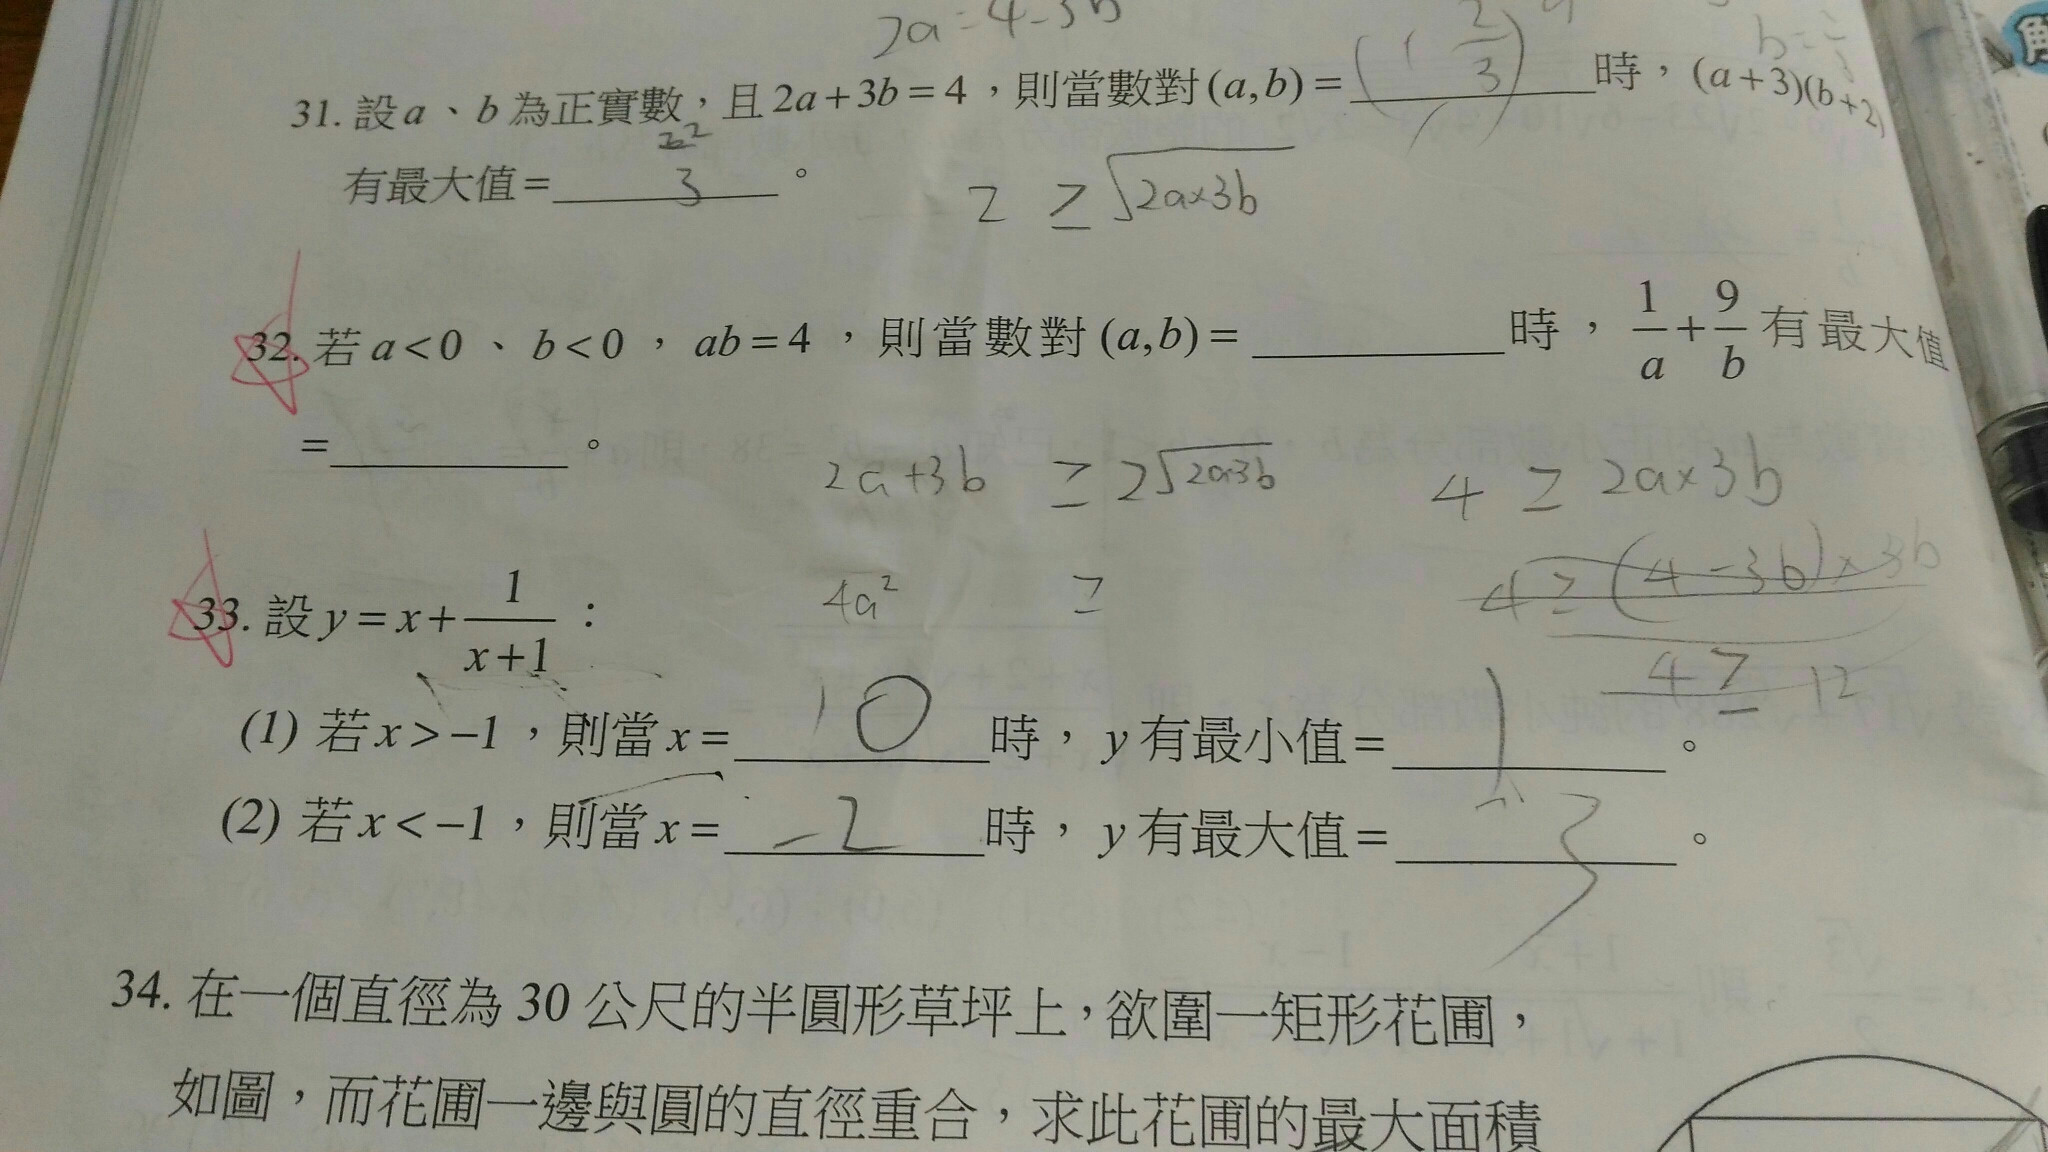 2a = 4 - 3b
31. 設 a、b 為正實數，且 2a+3b=4，則當數對 (a,b) = (1 2/3) 時，(a+3)(b+2)
有最大值= 3 。
2 ≥ √(2a×3b)
32. 若 a<0、b<0，ab=4，則當數對 (a,b) = ______ 時，1/a + 9/b 有最大值
=______。
2a+3b ≥ 2√(2a·3b) 4 ≥ 2a×3b
4a² ≥ 4 ≥ (4-3b)×3b
33. 設 y = x + 1/(x+1)：
4 ≥ 12
(1) 若 x>-1，則當 x= 0 時，y 有最小值= 1 。
(2) 若 x<-1，則當 x= -2 時，y 有最大值= -3 。
34. 在一個直徑為 30 公尺的半圓形草坪上，欲圍一矩形花圃，
如圖，而花圃一邊與圓的直徑重合，求此花圃的最大面積